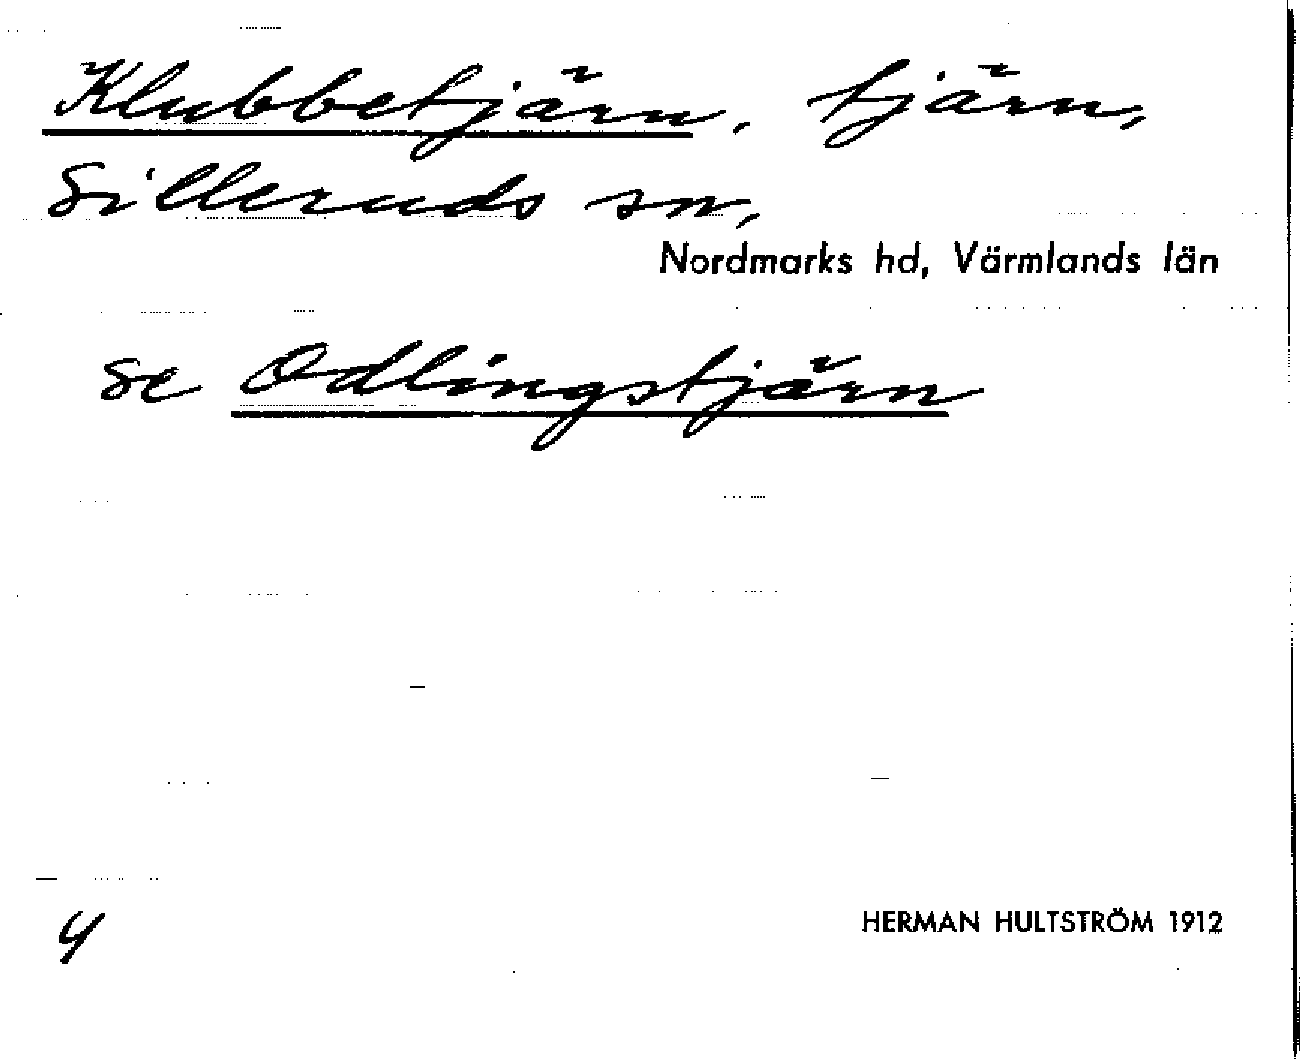 Klubbetjärn, tjärn,
Silleruds sn,
Nordmarks hd, Värmlands län
se Odlingstjärn
4
HERMAN HULTSTRÖM 1912